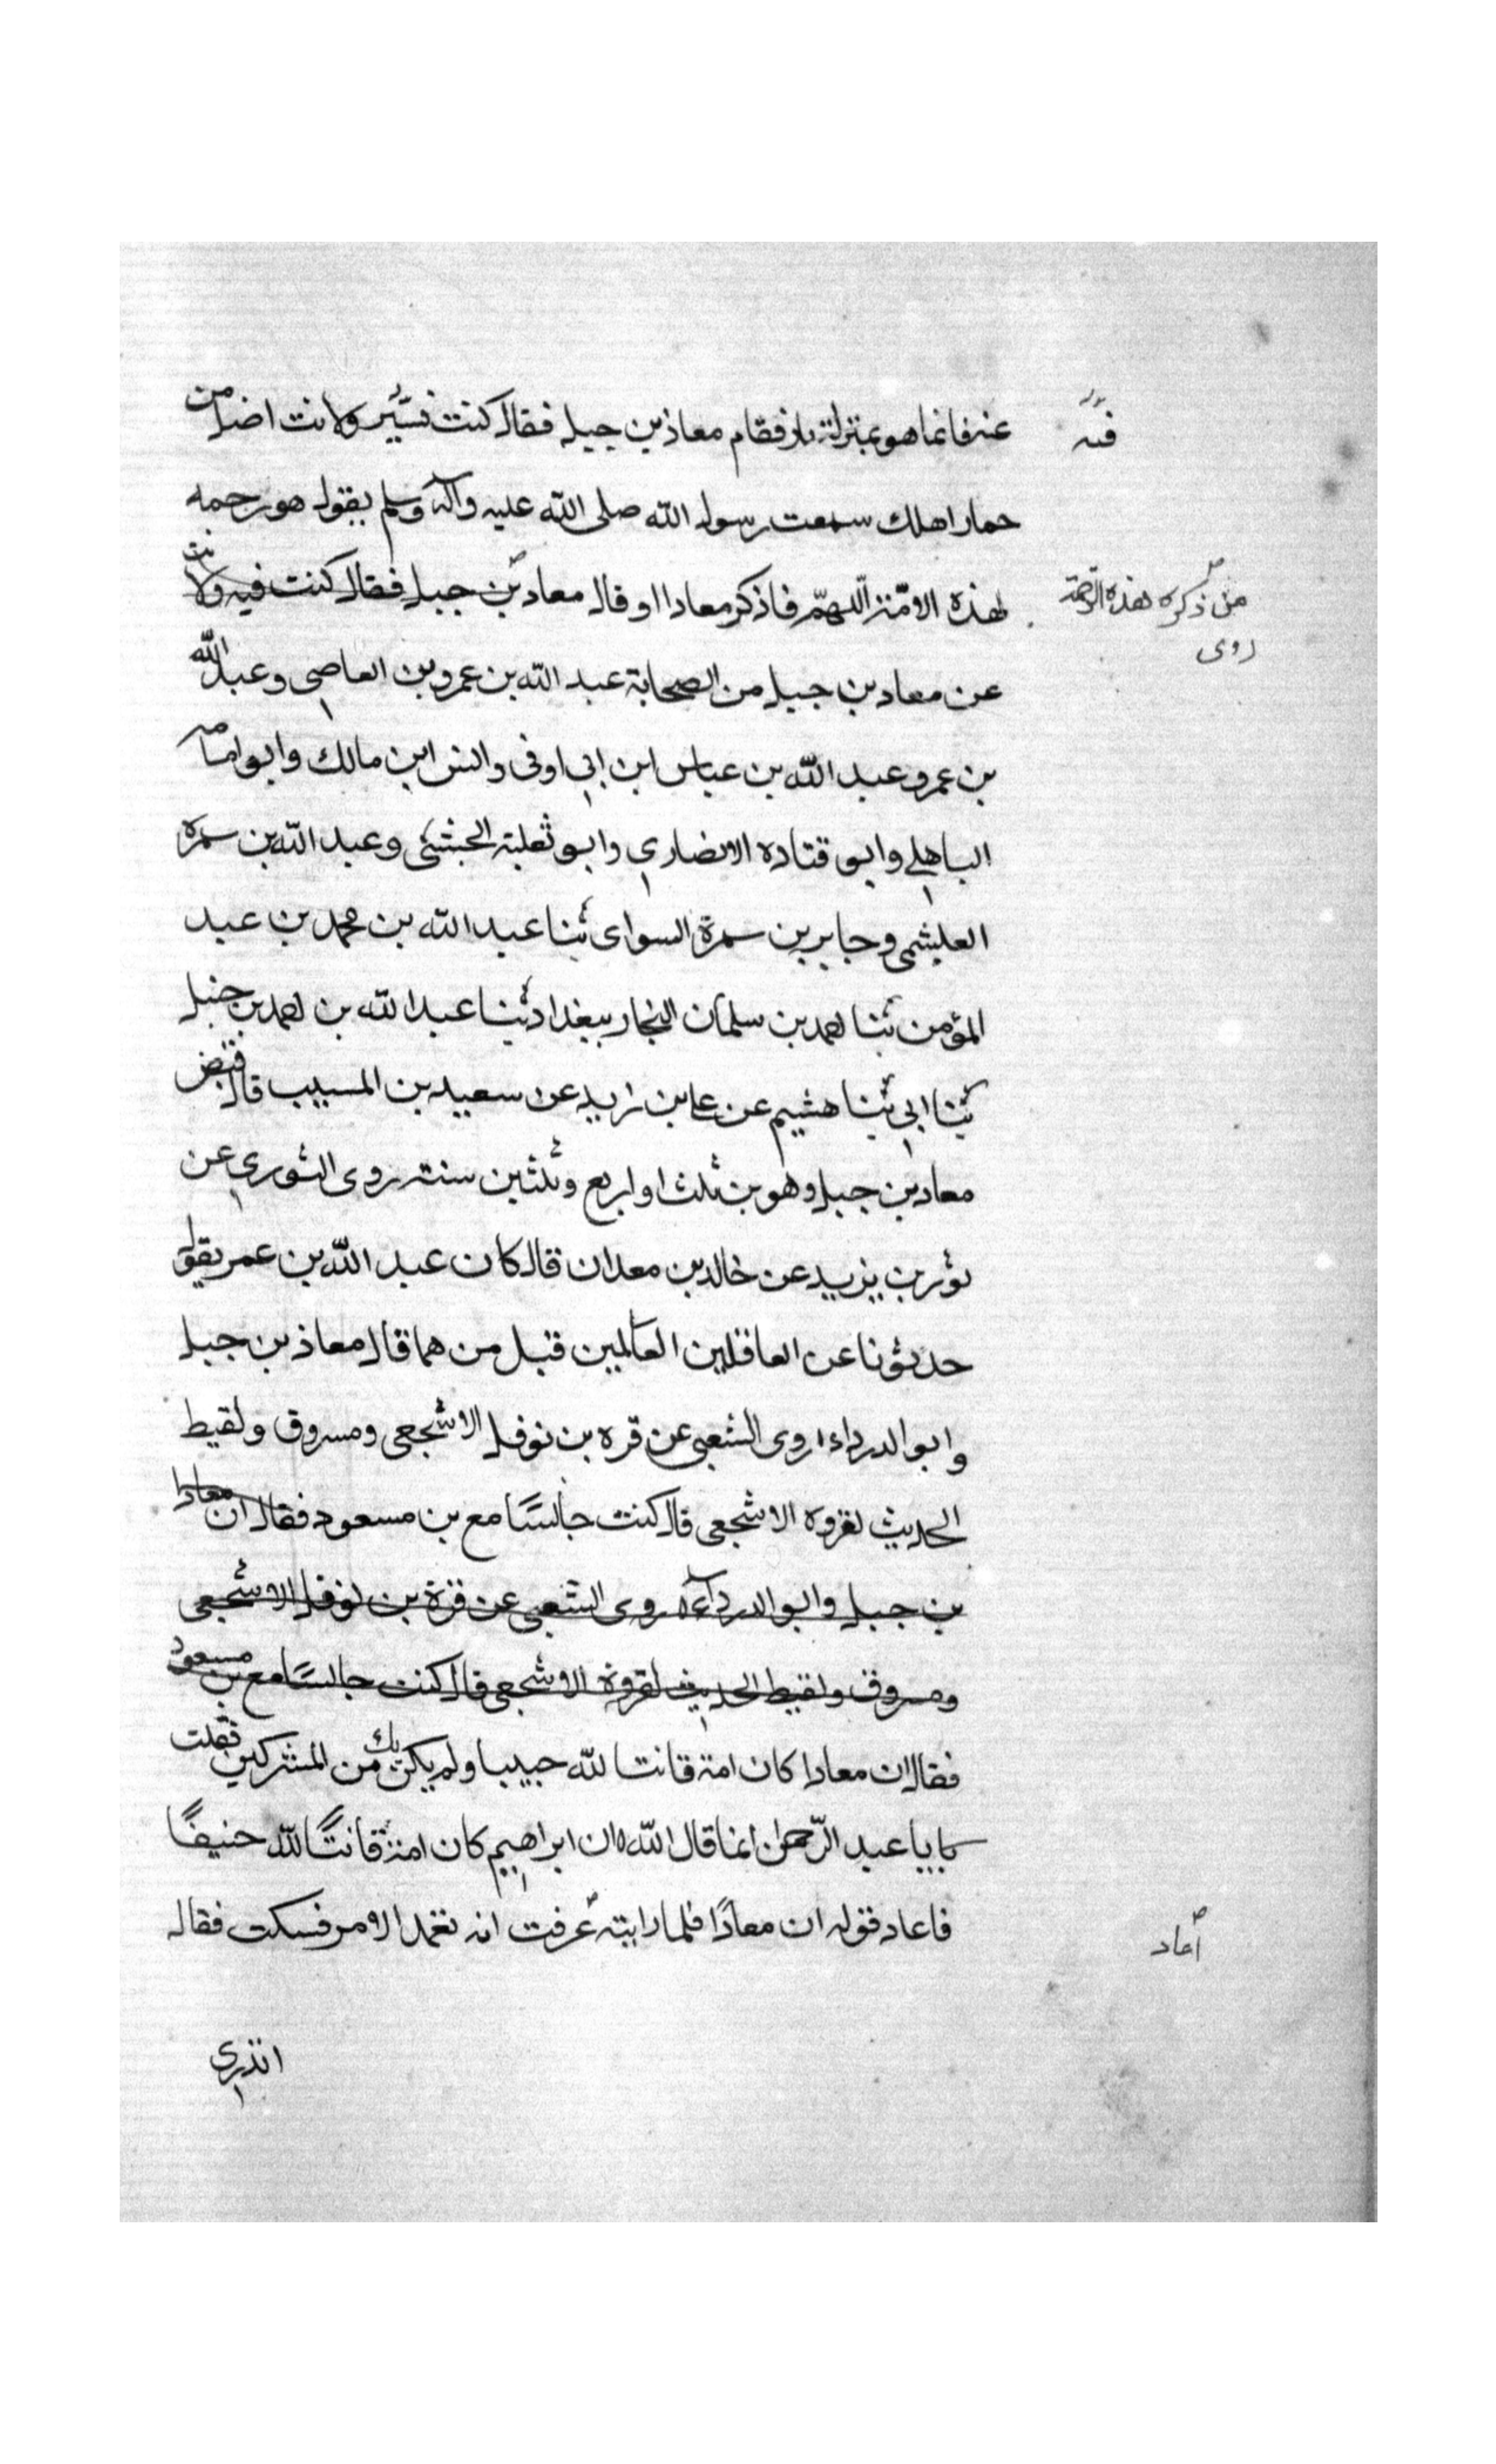 عنه فانما هو بمنزلة نار فقام معاذ بن جبل فقال كنت فسير ولانت اضل من
فيه
حمار اهلك سمعت رسول الله صلى الله عليه وآله وسلم يقول هو رحمه
لهذه الامة اللهم فاذكر معادا او قال معاد بن جبل فقال كنت فيه ولانت
من ذكره بهذه الرحمة
روى
عن معاد بن جبل من الصحابة عبد الله بن عمرو بن العاصي وعبد الله
بن عمر وعبد الله بن عباس ابن ابي اوفى وانس ابن مالك وابو امامه
الباهلي وابو قتاده الانصاري وابو ثعلبة الخشنى وعبد الله بن سمره
العبشمي وجابر بن سمرة السواى ثنا عبد الله بن محمد بن عبد
المؤمن ثنا احمد بن سلمان النجار ببغداد ثنا عبد الله بن احمد بن حنبل
ثنا ابي ثنا هشيم عن علي بن زيد عن سعيد بن المسيب قال قبض
معاد بن جبل وهو بن ثلث او اربع وثلثين سنة روى الثوري عن
ثور بن يزيد عن خالد بن معدان قال كان عبد الله بن عمر يقول
حدثونا عن العاقلين العالمين قيل من هما قال معاذ بن جبل
وابو الدرداء روى الشعبى عن قره بن نوفل الاشجعى ومسروق ولقيط
الحديث لفروة الاشجعى قال كنت جالسًا مع بن مسعود فقال ان معاذا
بن جبل وابو الدرداء روى الشعبى عن قرة بن نوفل الاشجعى
ومسروق ولقيط الحديث لفروة الاشجعى قال كنت جالسًا مع بن مسعود
فقال ان معاذا كان امة قانتا لله حنيفا ولم يكن يك من المشركين فقلت
يا با عبد الرحمن انما قال الله ان ابراهيم كان امة قانتًا لله حنيفًا
فاعاد قوله ان معاذًا فلما رايته عرفت انه تعمد الامر فسكت فقال
اعاد
اتدري